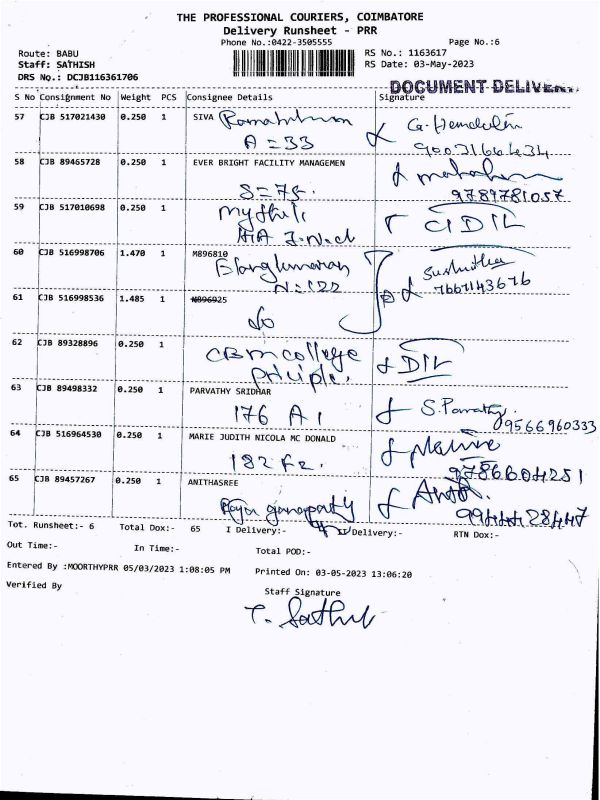 THE PROFESSIONAL COURIERS, COIMBATORE
Delivery Runsheet - PRR
Phone No.:0422-3505555 Page No.:6
Route: BABU RS No.: 1163617
Staff: SATHISH RS Date: 03-May-2023
DRS No.: DCJB116361706
DOCUMENT DELIVERY
S No Consignment No Weight PCS Consignee Details Signature
57 CJB 517021430 0.250 1 SIVA
A = 33
9003166434
58 CJB 89465728 0.250 1 EVER BRIGHT FACILITY MANAGEMEN
S = 75.
9789781057
59 CJB 517010698 0.250 1 mythili
60 CJB 516998706 1.470 1 M896810
Elangkumaran Sushmitha
N = 122 7667143676
61 CJB 516998536 1.485 1 M896925
Do
62 CJB 89328896 0.250 1
CBM college
63 CJB 89498332 0.250 1 PARVATHY SRIDHAR
176 A1 S. Parvathy.
9566960333
64 CJB 516964530 0.250 1 MARIE JUDITH NICOLA MC DONALD
182 F2.
9786604251
65 CJB 89457267 0.250 1 ANITHASREE
Raja ganapathy
9944428447
Tot. Runsheet:- 6 Total Dox:- 65 I Delivery:- II Delivery:- RTN Dox:-
Out Time:- In Time:- Total POD:-
Entered By :MOORTHYPRR 05/03/2023 1:08:05 PM Printed On: 03-05-2023 13:06:20
Verified By Staff Signature
T. Sathish